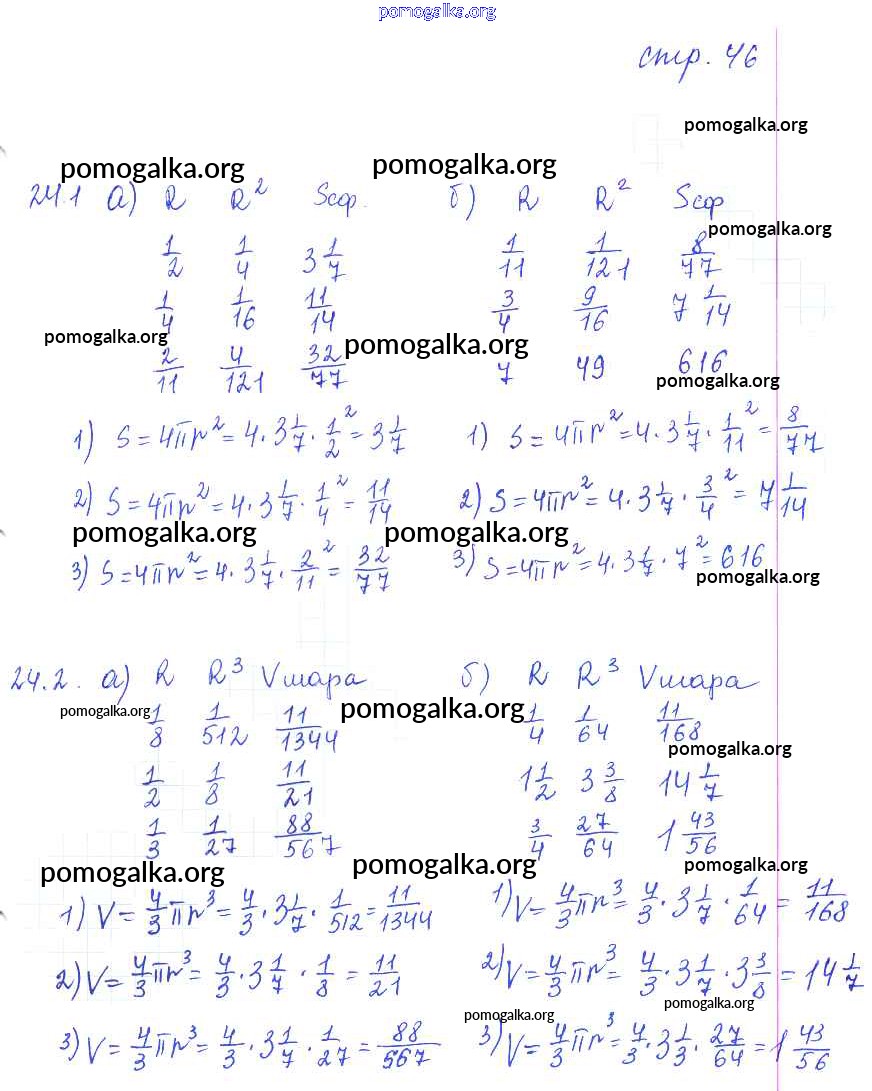 pomogalka.org
стр. 46
pomogalka.org
pomogalka.org pomogalka.org
24.1 а) R R² Sсф. б) R R² Sсф
pomogalka.org
1/2 1/4 3 1/7 1/11 1/121 8/77
1/4 1/16 11/14 3/4 9/16 7 1/14
pomogalka.org pomogalka.org
2/11 4/121 32/77 7 49 616
pomogalka.org
1) S = 4πr² = 4 · 3 1/7 · 1/2² = 3 1/7 1) S = 4πr² = 4 · 3 1/7 · 1/11² = 8/77
2) S = 4πr² = 4 · 3 1/7 · 1/4² = 11/14 2) S = 4πr² = 4 · 3 1/7 · 3/4² = 7 1/14
pomogalka.org pomogalka.org
3) S = 4πr² = 4 · 3 1/7 · 2/11² = 32/77 3) S = 4πr² = 4 · 3 1/7 · 7² = 616
pomogalka.org
24.2. а) R R³ Vшара б) R R³ Vшара
pomogalka.org pomogalka.org
1/8 1/512 11/1344 1/4 1/64 11/168
pomogalka.org
1/2 1/8 11/21 1 1/2 3 3/8 14 1/7
1/3 1/27 88/567 3/4 27/64 1 43/56
pomogalka.org pomogalka.org pomogalka.org
1) V = 4/3 πr³ = 4/3 · 3 1/7 · 1/512 = 11/1344 1) V = 4/3 πr³ = 4/3 · 3 1/7 · 1/64 = 11/168
2) V = 4/3 πr³ = 4/3 · 3 1/7 · 1/8 = 11/21 2) V = 4/3 πr³ = 4/3 · 3 1/7 · 3 3/8 = 14 1/7
pomogalka.org pomogalka.org
3) V = 4/3 πr³ = 4/3 · 3 1/7 · 1/27 = 88/567 3) V = 4/3 πr³ = 4/3 · 3 1/3 · 27/64 = 1 43/56